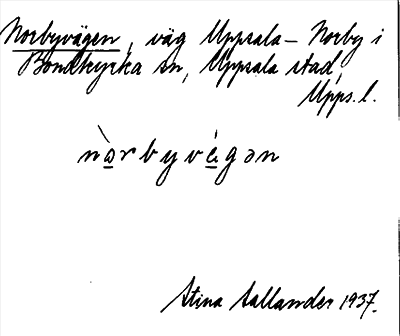 Norbyvägen, väg Uppsala – Norby i
Bondkyrka sn, Uppsala stad,
Upps. l.
nòrbyvɛ́gən
Stina Sallander 1937.